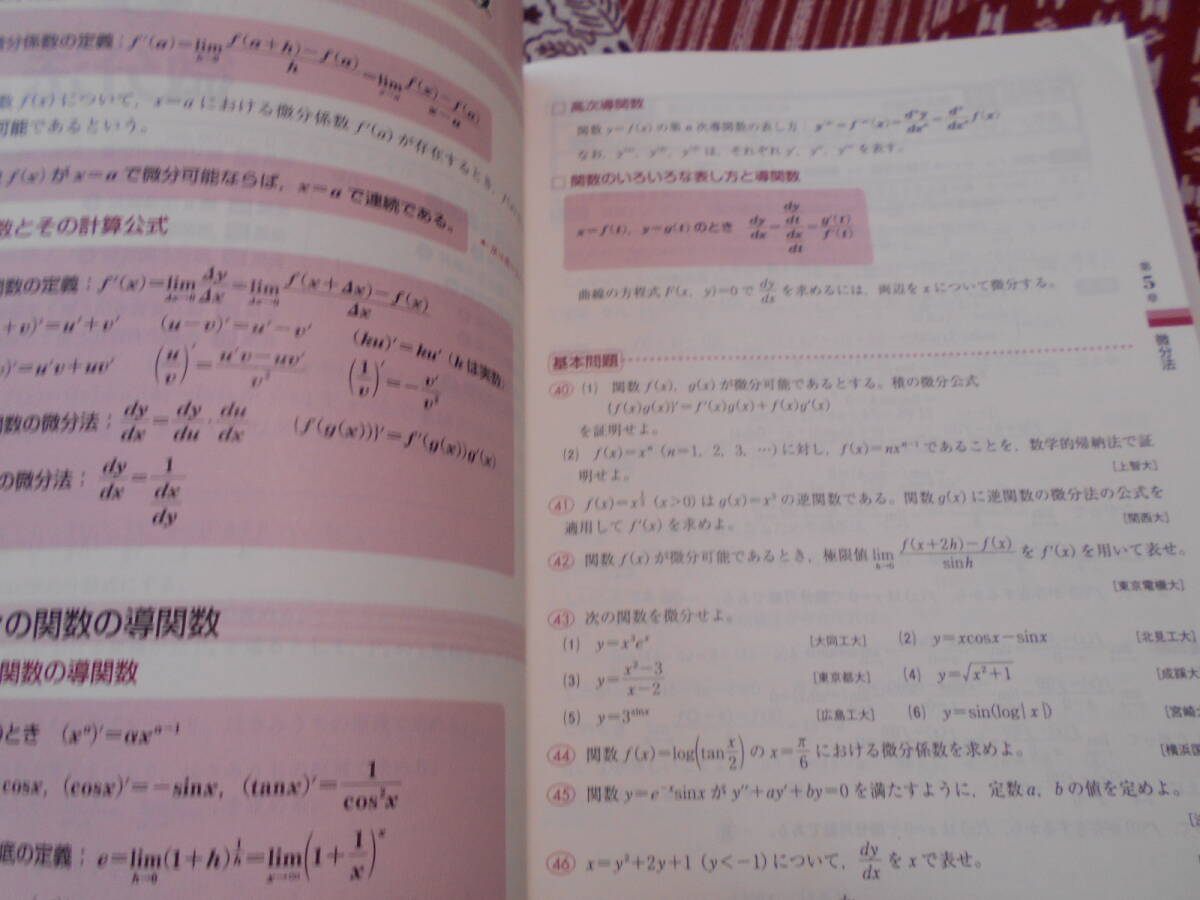 微分係数の定義：f'(a)=lim h→0 f(a+h)-f(a)/h=lim x→a f(x)-f(a)/x-a
数 f(x) について，x=a における微分係数 f'(a) が存在するとき，
可能であるという。
f(x) が x=a で微分可能ならば，x=a で連続である。
数とその計算公式
関数の定義：f'(x)=lim Δx→0 Δy/Δx=lim Δx→0 f(x+Δx)-f(x)/Δx
+v)'=u'+v' (u-v)'=u'-v' (ku)'=ku' (kは実数)
)'=u'v+uv' (u/v)'=u'v-uv'/v² (1/v)'=-v'/v²
関数の微分法：dy/dx=dy/du・du/dx {f(g(x))}'=f'(g(x))g'(x)
の微分法：dy/dx=1/dx/dy
の関数の導関数
関数の導関数
とき (xⁿ)'=αxⁿ⁻¹
cosx, (cosx)'=-sinx, (tanx)'=1/cos²x
底の定義：e=lim h→0 (1+h)^1/h=lim x→∞ (1+1/x)^x
□ 高次導関数
関数 y=f(x) の第 n 次導関数の表し方：y⁽ⁿ⁾=f⁽ⁿ⁾(x)=dⁿy/dxⁿ=dⁿ/dxⁿ f(x)
なお，は，それぞれ y', y'', y''' を表す。
□ 関数のいろいろな表し方と導関数
x=f(t), y=g(t) のとき dy/dx=dy/dt/dx/dt=g'(t)/f'(t)
曲線の方程式 F(x, y)=0 で dy/dx を求めるには，両辺を x について微分する。
第5章
微分法
基本問題
40 (1) 関数 f(x), g(x) が微分可能であるとする。積の微分公式
{f(x)g(x)}'=f'(x)g(x)+f(x)g'(x)
を証明せよ。
(2) f(x)=xⁿ (n=1, 2, 3, …) に対し，f'(x)=nxⁿ⁻¹ であることを，数学的帰納法で証
明せよ。 [上智大]
41 f(x)=x^1/3 (x>0) は g(x)=x³ の逆関数である。関数 g(x) に逆関数の微分法の公式を
適用して f'(x) を求めよ。 [関西大]
42 関数 f(x) が微分可能であるとき，極限値 lim h→0 f(x+2h)-f(x)/sinh を f'(x) を用いて表せ。
[東京電機大]
43 次の関数を微分せよ。
(1) y=x³eˣ [大同工大] (2) y=xcosx-sinx [北見工大]
(3) y=x²-3/x-2 [東京都大] (4) y=√x²+1 [成蹊大
(5) y=3^sinx [広島工大] (6) y=sin(log|x|) [宮崎大
44 関数 f(x)=log(tan x/2) の x=π/6 における微分係数を求めよ。 [横浜国
45 関数 y=e⁻ˣsinx が y''+ay'+by=0 を満たすように，定数 a, b の値を定めよ。
46 x=y²+2y+1 (y<-1) について，dy/dx を x で表せ。